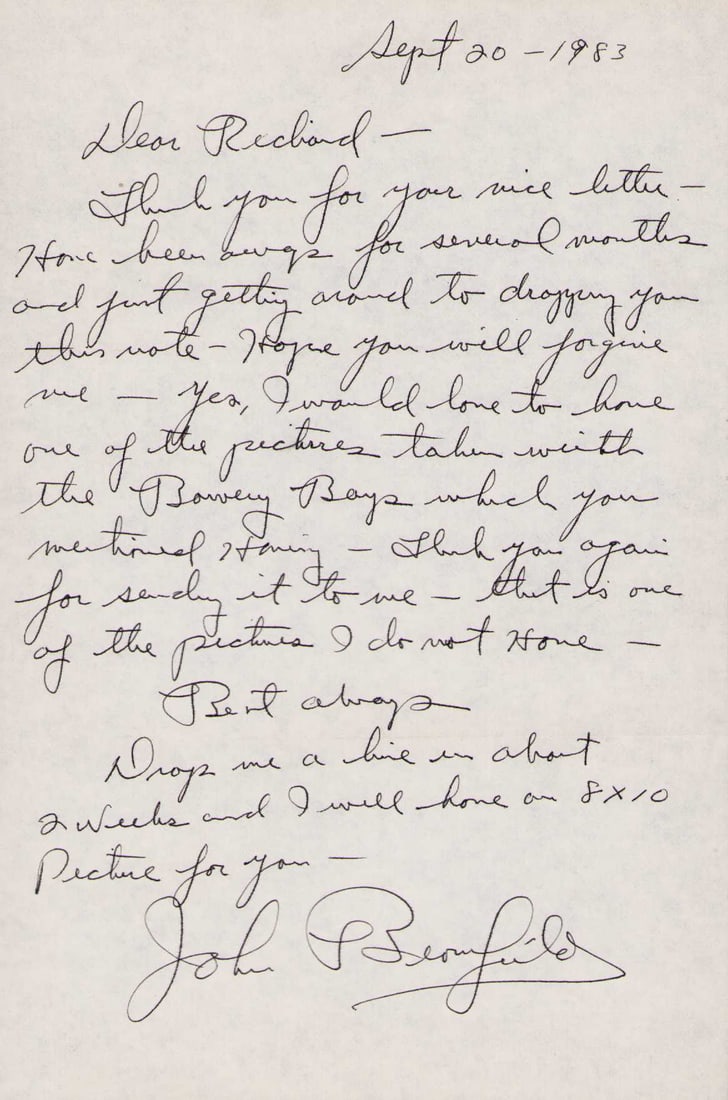 Sept 20 - 1983
Dear Richard -
Thank you for your nice letter -
Have been away for several months
and just getting around to dropping you
this note - Hope you will forgive
me - Yes, I would love to have
one of the pictures taken with
the Bowery Boys which you
mentioned Having - Thank you again
for sending it to me - that is one
of the pictures I do not Have -
Best always
Drop me a line in about
2 Weeks and I will have an 8X10
Picture for you -
John Bromfield